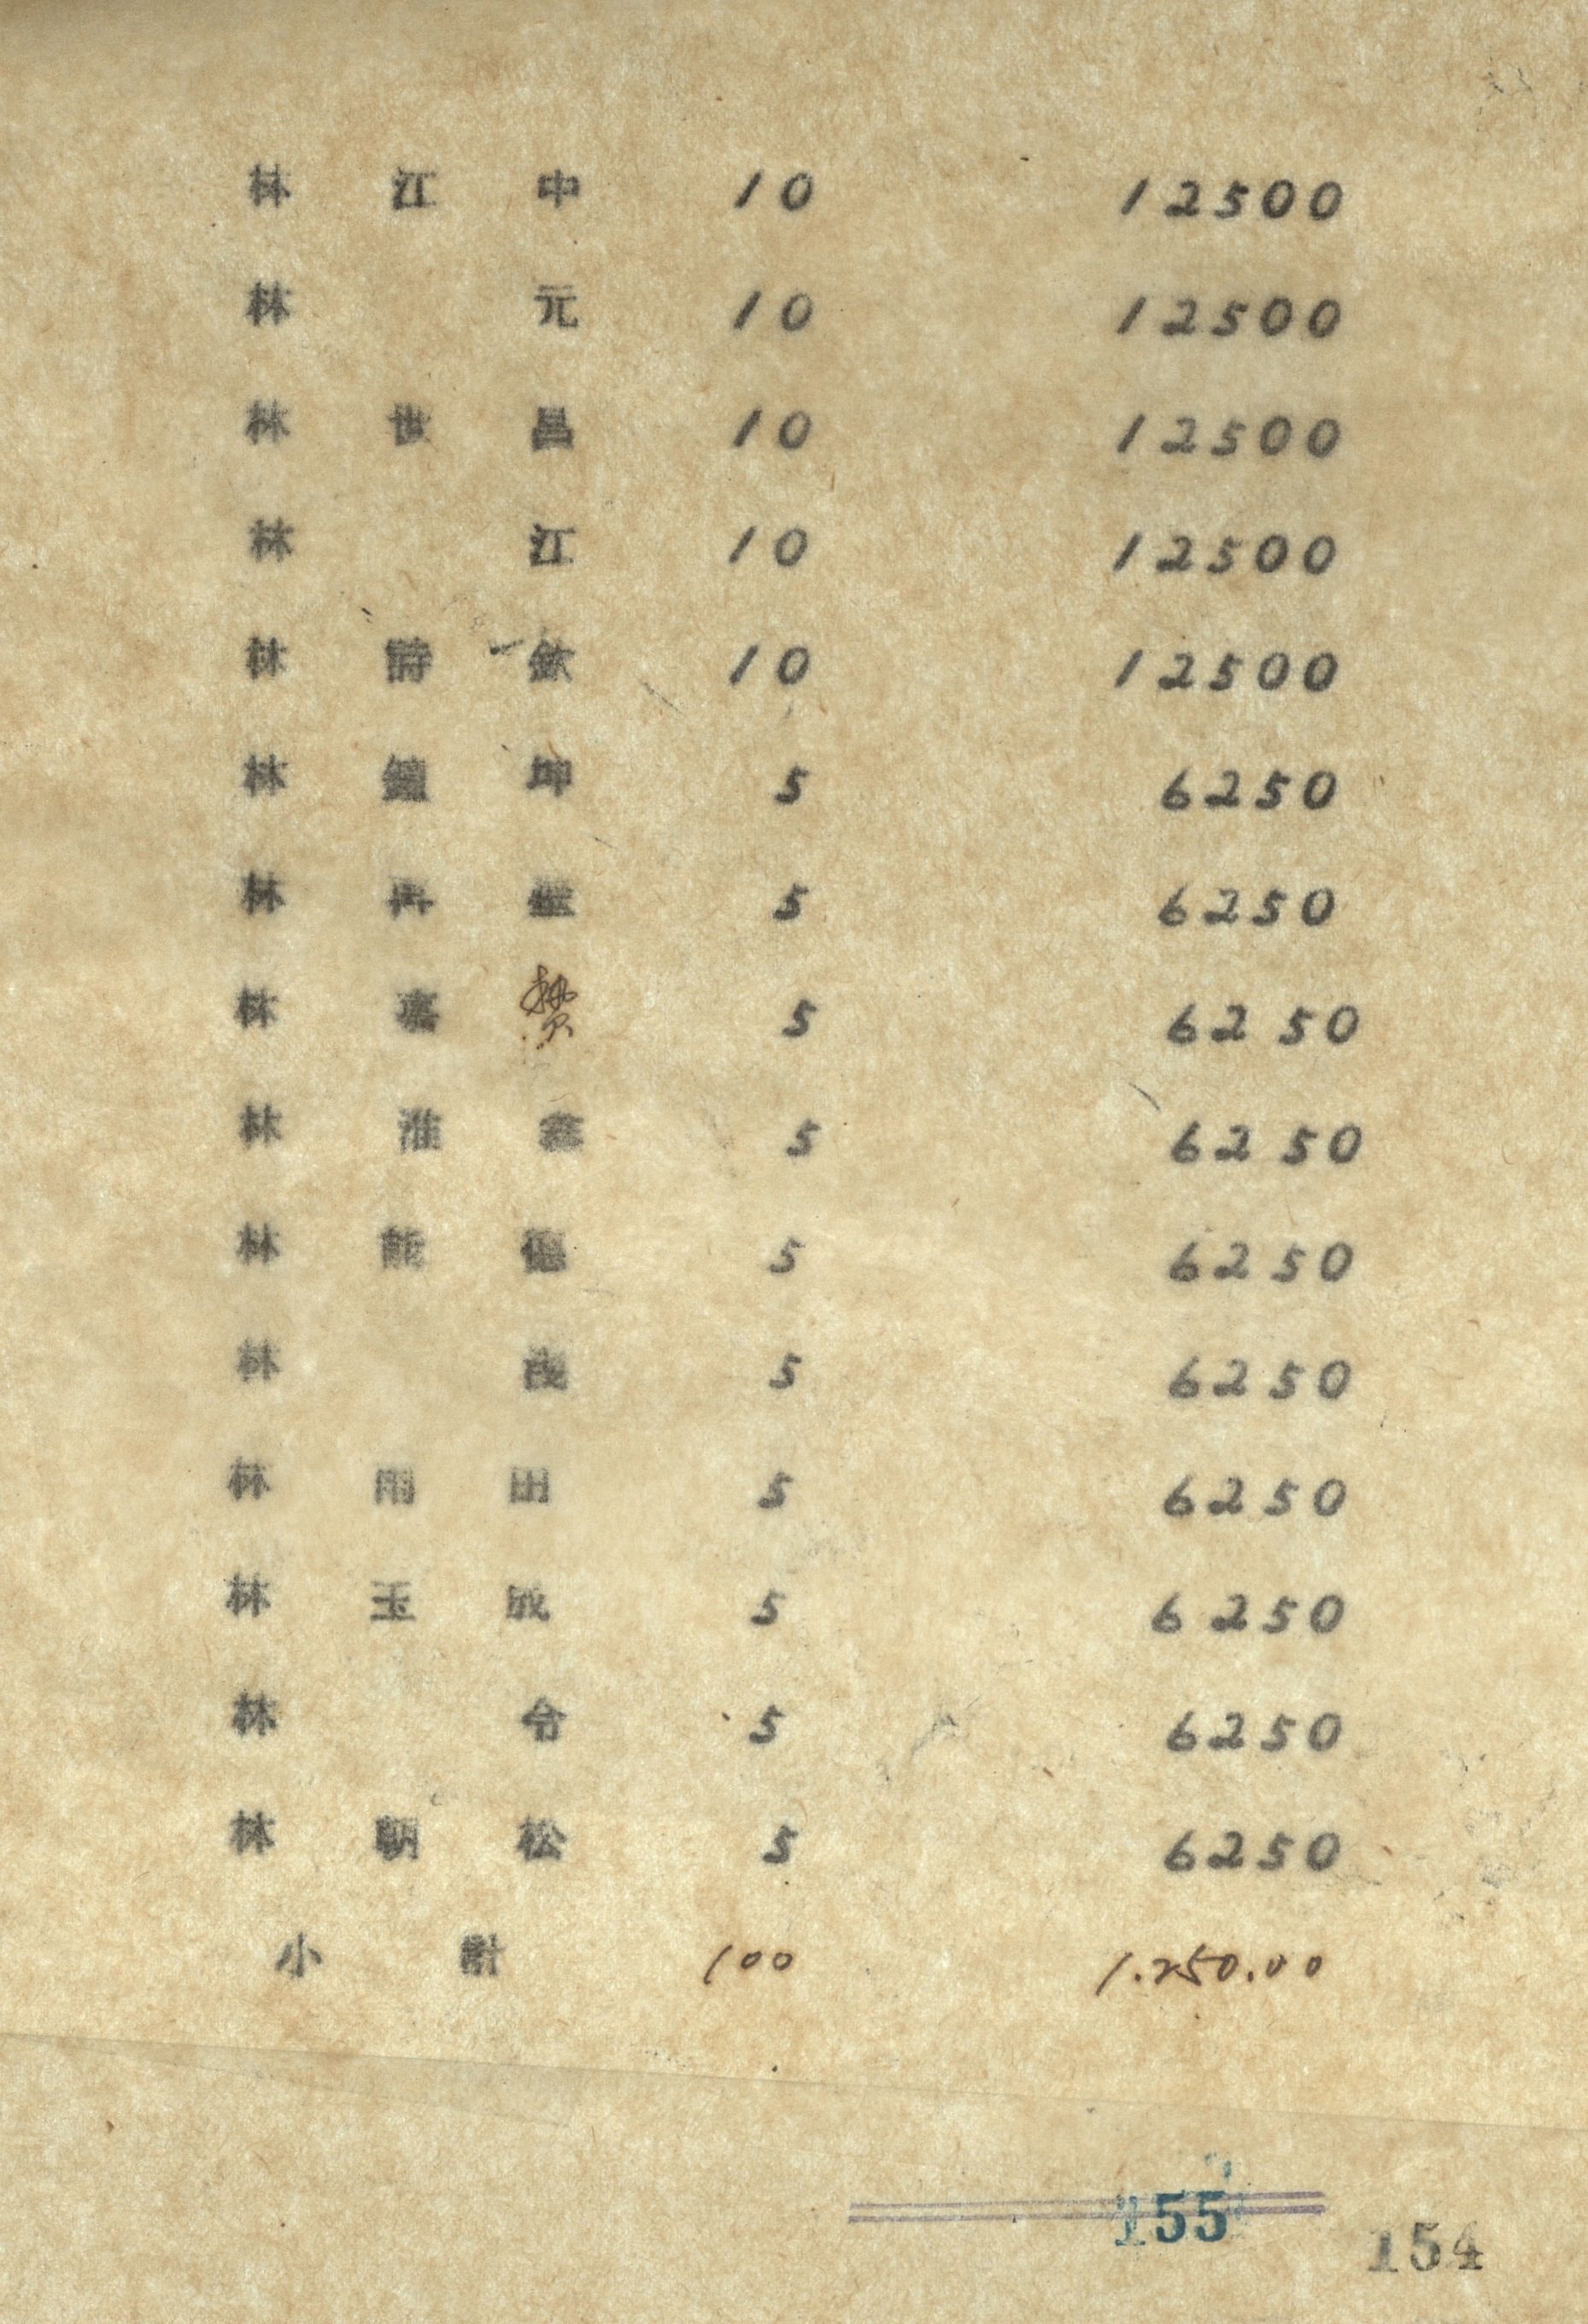 林江中 10 12500
林元 10 12500
林世昌 10 12500
林江 10 12500
林詩欽 10 12500
林坤 5 6250
林再 5 6250
林 5 6250
林淮 5 6250
林德 5 6250
林茂 5 6250
林雨田 5 6250
林玉成 5 6250
林令 5 6250
林朝松 5 6250
小計 100 1.250.00
155
154